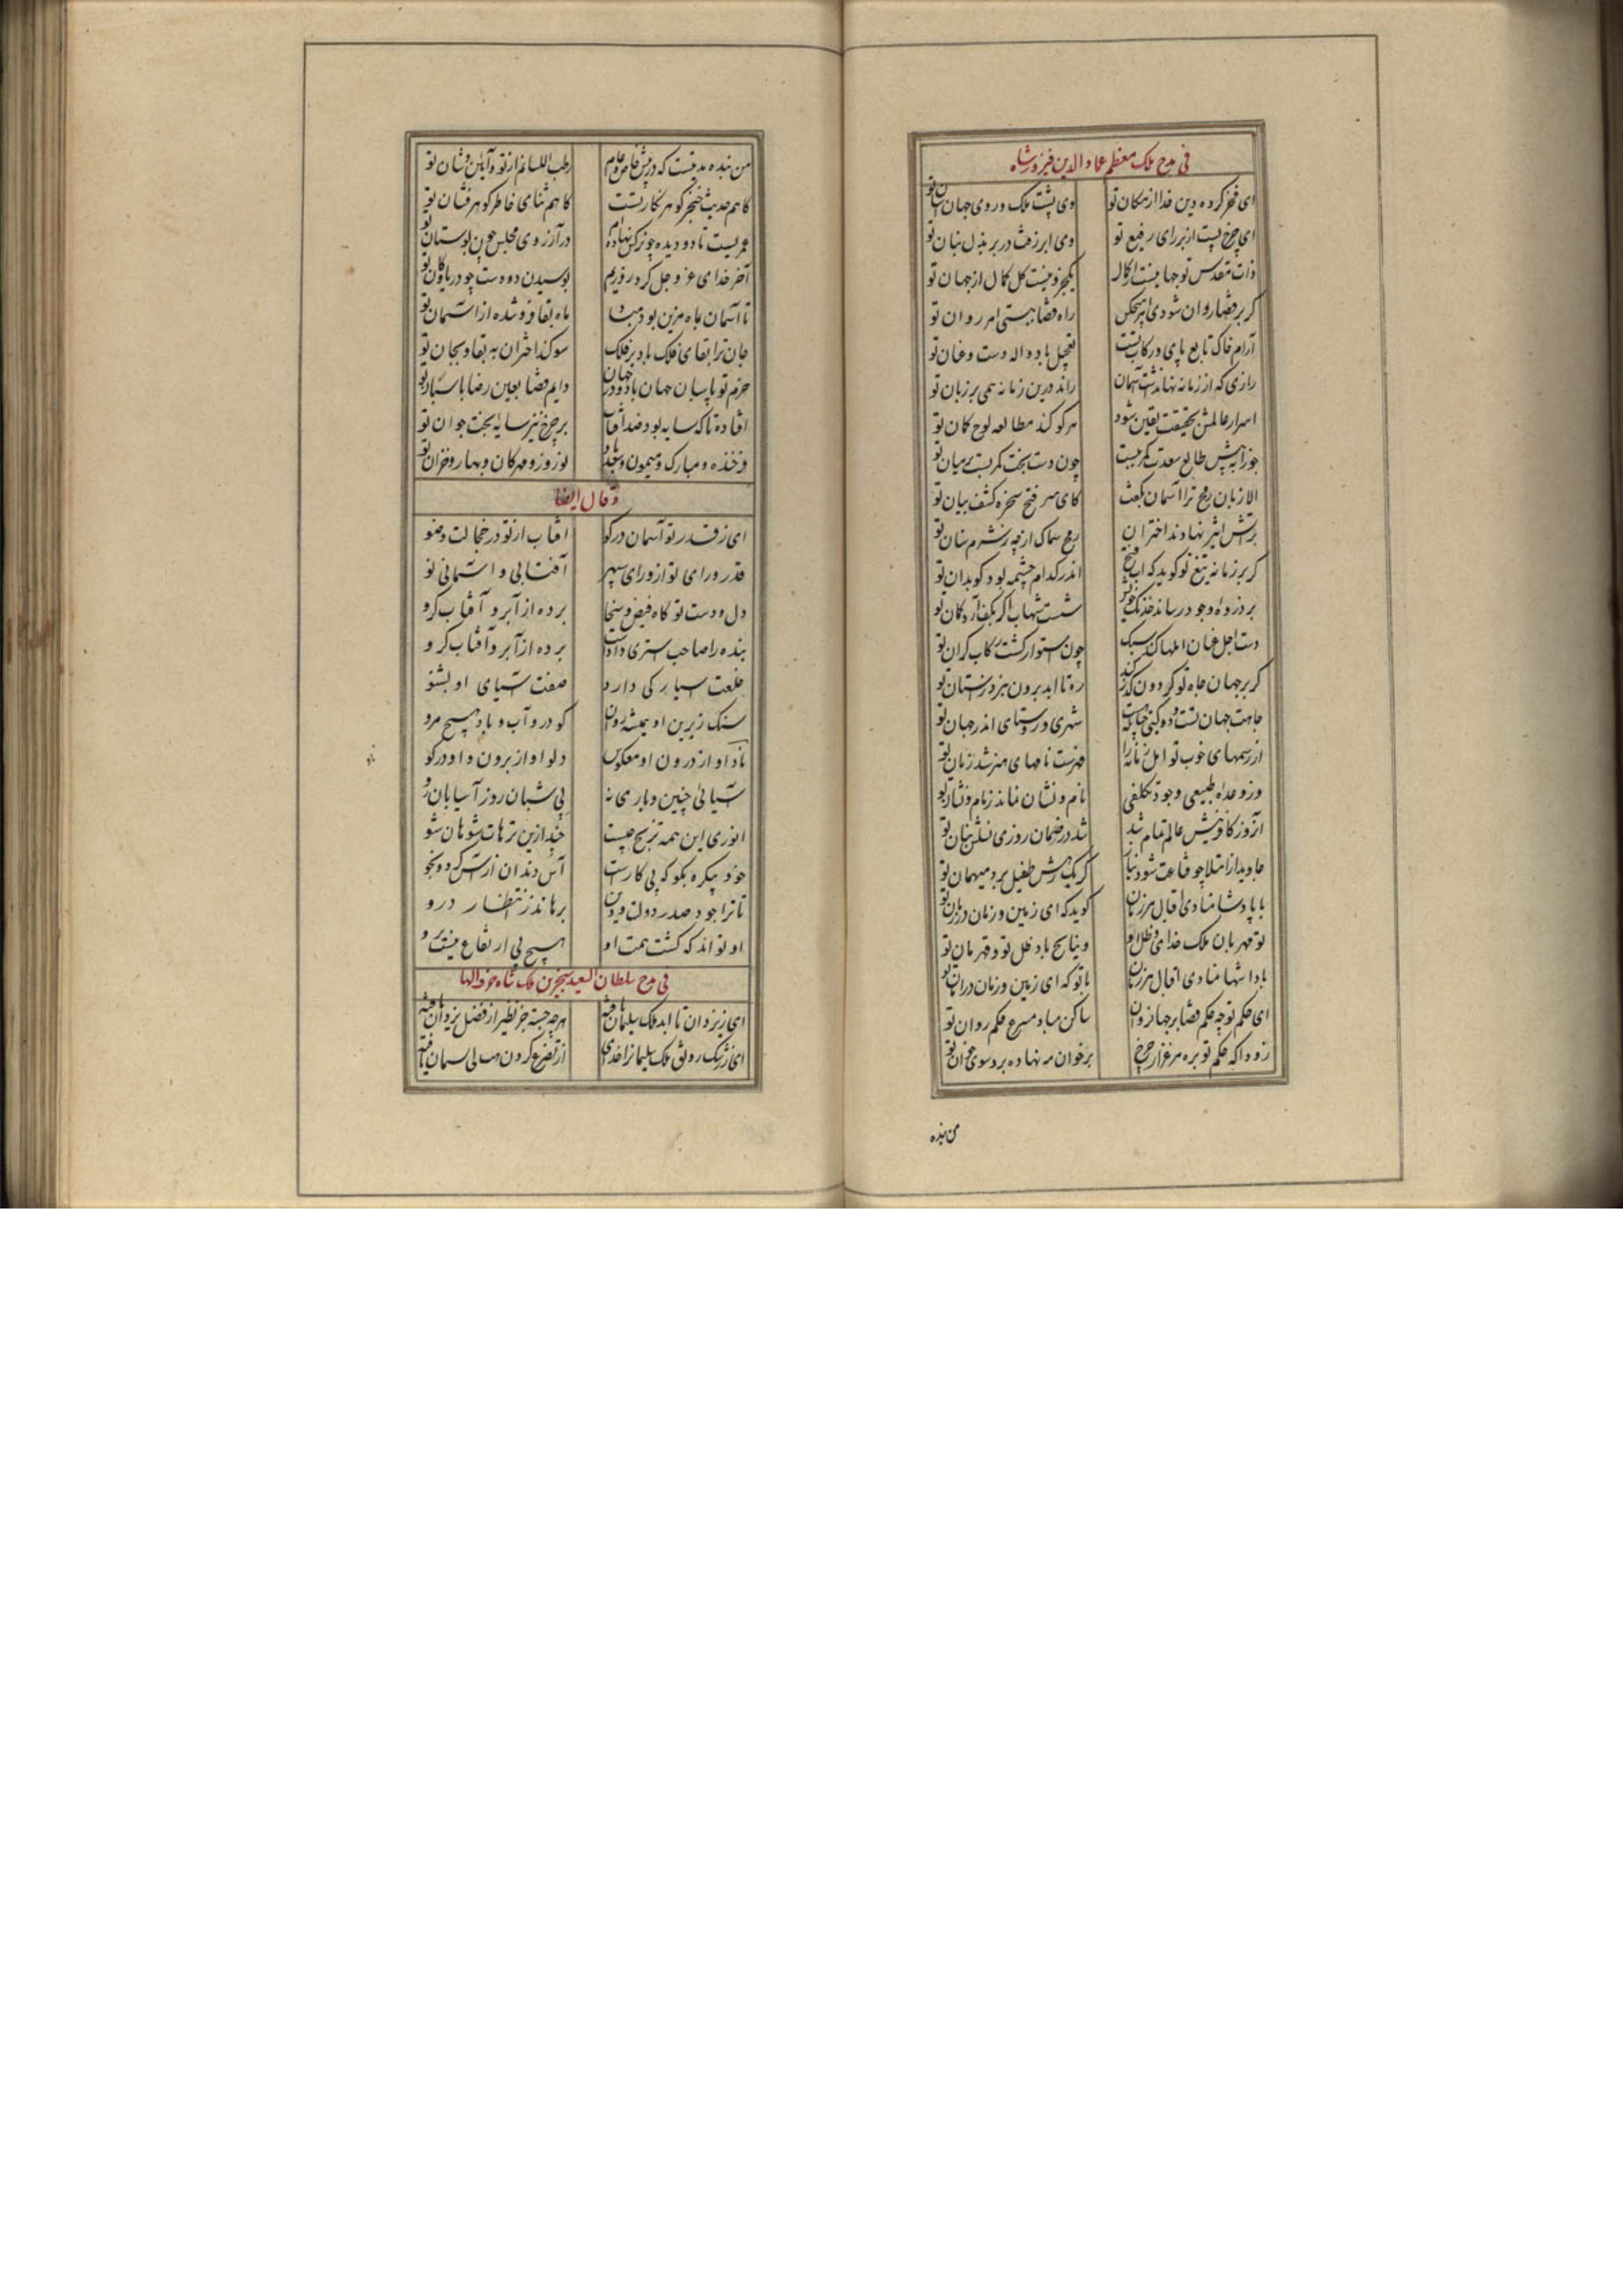 فی مدح ملک معظم عماد الدین فیروزشاه
ای فخر کرده دین خدا از مکان تو وی پشت ملک و روی جهان آستان تو
ای چرخ پست از بر رای رفیع تو وی ابر زفت در بر بذل بنان تو
ذات مقدس تو جهانیست از کمال یکجزو نیست کل کمال از جهان تو
کر بر قضا روان شودی امر هیچکس راه قضا ببستی امر روان تو
آرام خاک تابع پای و رکاب تست تعجیل باد واله دست و عنان تو
رازی که از زمانه نهان داشت آسمان راند درین زمانه همی بر زبان تو
اسرار عالمش بحقیقت یقین شود هر کو کند مطالعه لوح کمان تو
جوزا به پیش طالع سعدت کمر ببست چون دست بخت کمر بست بر میان تو
الا زبان رمح ترا آسمان نکفت کای سر فتح سخره کشف بیان تو
بر آتش اثیر نهادند اختران رمح سماک از چه ز شرم سنان تو
کر بر زمانه تیغ تو کوید که آب فتح اندر کدام چشمه بود کوید آن تو
بر ذروه وجود رساند خدنک خویش شست شهاب اکر بکف آرد کمان تو
دست اجل عنان املها کند سبک چون استوار کشت رکاب کران تو
کر بر جهان جاه تو کردون کذر کند ره تا ابد برون نبرد ز آستان تو
جاهت جهان تست و دو کیتی چنانک هست شهری و روستای اندر جهان تو
از رسمهای خوب تو اهل زمانه را فهرست نامهای هنر شد زمان تو
وز وعدهاء طبیعی وجود تکلفی نام و نشان نماند ز نام و نشان تو
آنروز کافرینش عالم تمام شد شد در ضمان روزی نسلش بنان تو
جاوید از امتلا چو قناعت شود نیاز کر یک رهش طفیل برد میهمان تو
با پادشا منادی اقبال هر زمان کوید که ای زمین و زمان در امان تو
تو قهرمان ملک خدایی و ظل او وینایح باد ظل تو و قهرمان تو
بادا شها منادی اقبال هر زمان با تو که ای زمین و زمان در امان تو
ای حکم تو چو حکم قضا بر جهان روان ساکن مباد مسرع حکم روان تو
زود آکه حکم تو بره مرغزار چرخ بر خوان مه نهاده برد سوی خوان تو
من بنده
من بنده مدتیست که در پیش خاص و عام رطب اللسانم از تو و آیین و شان تو
کاهم حدیث خنجر کوهر نکار تست کاهم ثنای خاطر کوهر فشان تو
عمریست تا دو دیده چو نرکس نهاده ام در آرزوی مجلس چون بوستان تو
آخر خدای عز و جل کرد روزیم بوسیدن دو دست چو دریا و کان تو
تا آسمان بماه مزین بود مباد ماه بقا فرو شده از آسمان تو
جان ترا بقای فلک باد بر فلک سوکند اختران به بقا و بجان تو
حزم تو پاسبان جهان باد و در جهان دایم قضا بعین رضا پاسبان تو
افتاده تا که سایه بود ضد آفتاب بر چرخ نیز سایه بخت جوان تو
فرخنده و مبارک و میمون و سعد باد نوروز و مهرکان و بهار و خزان تو
و قال ایضا
ای ز قدر تو آسمان در کو آفتاب از تو در خجالت و ضو
قدر و رای تو از ورای سپهر آفتابی و آسمانی نو
دل و دست تو کاه فیض و سخا برده از آبر و آفتاب کرو
بنده را صاحب استری دادست برده از آبر و آفتاب کرو
خلعت آسیابکی دارد صفت آسیای او بشنو
سنک زیرین او همیشه روان کو درو آب و باد هیچ مرو
ناو او از درون او معکوس دلو او از برون و او در کو
آسیائی چنین و باری نه پی شبان روز آسیابان رو
انوری این همه تزیج چیست چند ازین ترهات شو هان شو
خود بیکره بکو که بی کارست آس دندان از آتش کرد و بجو
تا ترا جود صدر دولت و دین برهاند ز انتظار درو
او تواند که کشت همت او هیچ بی ارتفاع نیست برو
فی مدح سلطان السعید سنجر بن ملک شاه
ای ز یزدان تا ابد ملک سلیمان یافته هرچه جسته جز نظیر از فضل یزدان یافته
ای ز رشک رونق ملک سلیمان را خدای از تضرع کردن یافته